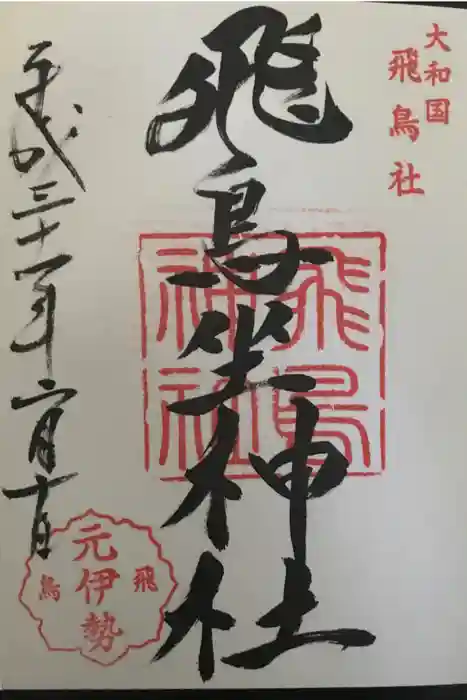 大和国
飛鳥社
飛鳥坐神社
飛鳥神社
平成三十一年二月十日
元伊勢
飛鳥